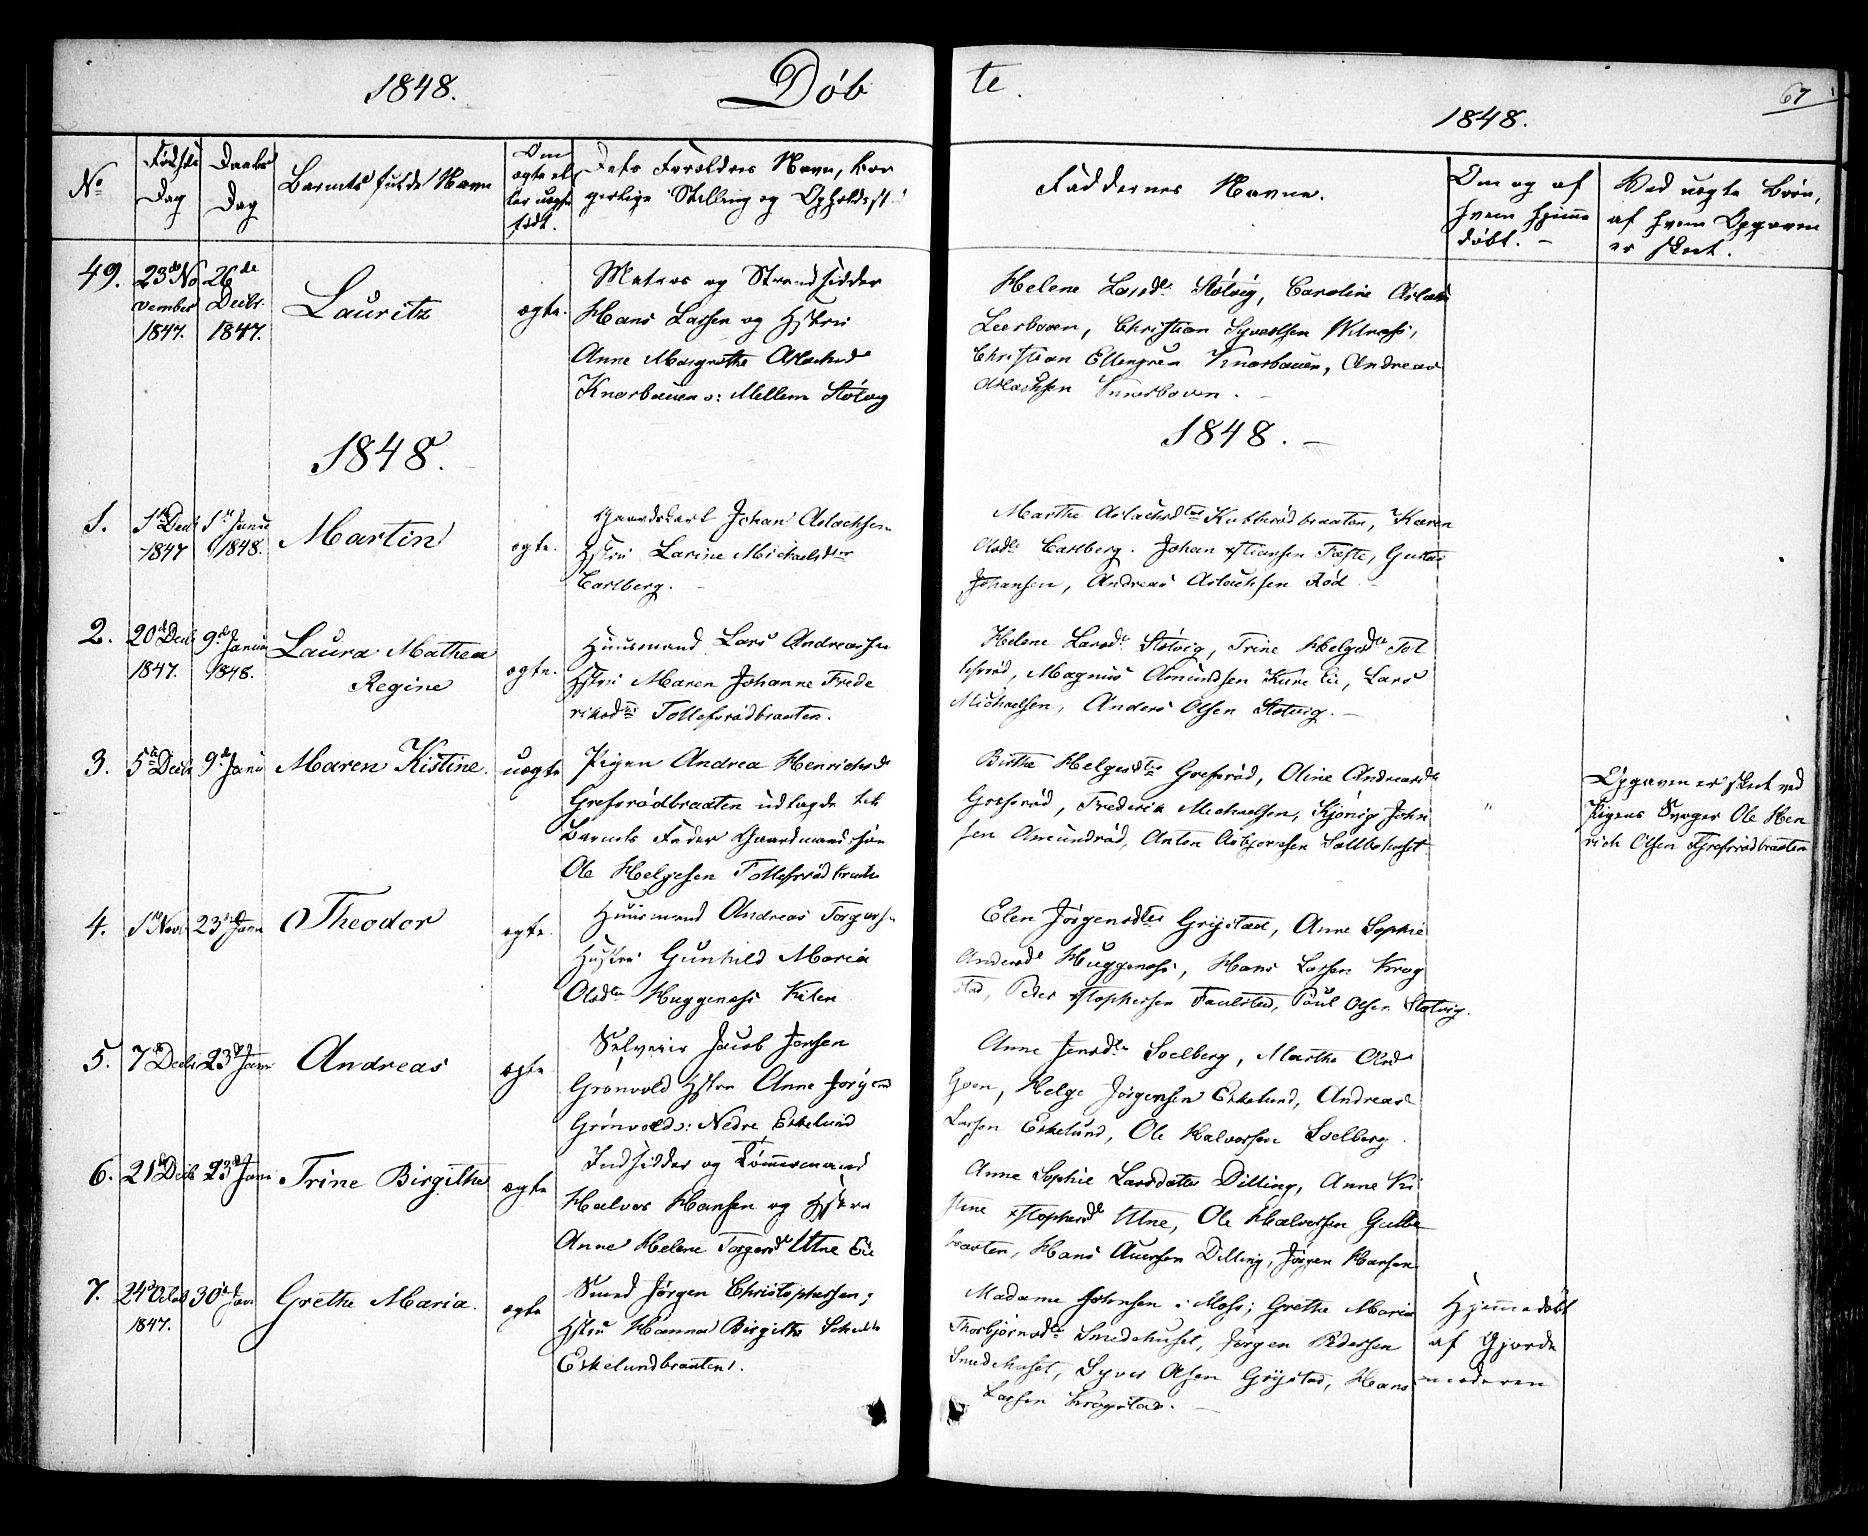 1848.
Døbte.
1848.
67
No
Fødsels Dag
Daabs Dag
Barnets fulde Navn
Om ægte eller uægte født.
Dets Forældres Navn, borgerlige Stilling og Opholdsst
Faddernes Navne.
Om og af hvem hjemmedøbt. -
Ved uægte Børn, af hvem Opgaven er skeet.
49.
23de November 1847.
26de Decbr. 1847.
Lauritz
ægte.
Matros og Strandsidder
Hans Larsen og Hstru
Anne Margrethe Aslachsd
Knarbauen o: Mellem Støtvig
Helene Larsdtr Støtvig, Caroline
Leerboven, Christian Syvertsen
Christian Ellengreen Knarbauen, Andreas
Aslachsen
1848.
1848. -
1.
1ste Decbr 1847
1ste Janu 1848.
Martin
ægte.
Johan Aslachsen
Hstru Larine Michaelsdter
Carlberg. -
Marthe Aslachsdter Kubberødbraaten, Karen
Olsdtr Carlberg. Johan Xstiansen Tofte, Gustav
Johansen, Andreas Aslachsen Rød -
2.
20de Decb 1847.
9de Janua 1848.
Laura Mathea
Regine
ægte.
Huusmand Lars Andreassen
Hstru Maren Johanne Frede
riksdter Tollefsrødbraaten.
Helene Larsdtr Støtvig, Trine Helgesdtr Tol
lefsrød, Magnus Amundsen Kure Eie, Lars
Michaelsen, Anders Olsen Støtvig. -
3.
5te Decbr
9de Janu
Maren Kistine.
uægte
Pigen Andrea Henrichsdtr
Grefsrødbraaten udlagde til
Barnets Fader Gaardmandssøn
Ole Helgesen Tollefsrødbraaten
Birthe Helgesdter Grefsrød, Oline Andreasdtr
Grefsrød, Frederik Michaelsen, Kjønig John
sen Amundrød, Anton Asbjørnsen Saltbohuset
"
Opgaven er skeet ved
Pigens Svoger Ole Hen
rich Olsen Grefsrødbraaten
4.
1ste Novb
23de Janu
Theodor
ægte.
Huusmand Andreas Torgersen
Hustru Gunhild Maria
Olsdtr Huggenæs Kilen
Elen Jørgensdter Grystad, Anne Sophie
Andersdtr Huggenæs, Hans Larsen Krog
stad, Peder Xstophersen Faulstad, Poul Olsen Støtvig.
5.
7de Decbr
23de Janu
Andreas
ægte
Selveier Jacob Jensen
Grønvold Hstru Anne Jørgensd
Grønvold o: Nedre Eskelund
Anne Jensdtr Soelberg, Marthe Olsd
Goen, Helge Jørgensen Eskelund, Andreas
Larsen Eskelund, Ole Halvorsen Soelberg.
6.
21de Decb
23de Janu
Trine Birgithe
ægte
Indsidder og Tømmermand
Halvor Hansen og Hstru
Anne Helene Torgersdtr Utne Eie
Anne Sophie Larsdatter Dilling, Anne Ki
stine Xstophersdtr Utne, Ole Halvorsen Gulbe
braaten, Hans Auensen Dilling, Jørgen Hansen
7.
24de Octob 1847.
30te Jan
Grethe Maria.
ægte
Smed Jørgen Christophersen;
Hstru Hanna Birgithe
Eskelundbraaten.
Madame Johnsen i Moss; Grethe Maria
Thorbjørnsdtr Smedehuset, Jørgen Pedersen
Smedehuset, Syver Olsen Grystad, Hans
Larsen Krogstad. -
Hjemmedøbt
af Gjorde
moderen